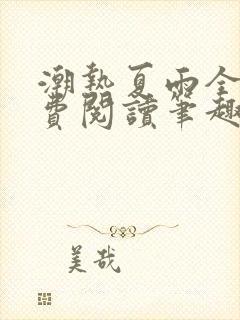 潮熱夏雨全
費閱讀筆趣
美哉